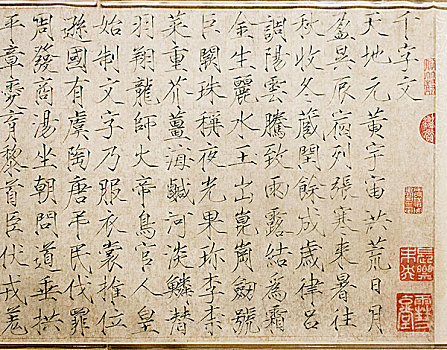 千字文
天地元黃宇宙洪荒日月
盈昃辰宿列張寒來暑往
秋收冬藏閏餘成歲律呂
調陽雲騰致雨露結為霜
金生麗水玉出崑崗劍號
巨闕珠稱夜光果珍李柰
菜重芥薑海鹹河淡鱗潛
羽翔龍師火帝鳥官人皇
始制文字乃服衣裳推位
遜國有虞陶唐弔民伐罪
周發商湯坐朝問道垂拱
平章愛育黎首臣伏戎羌